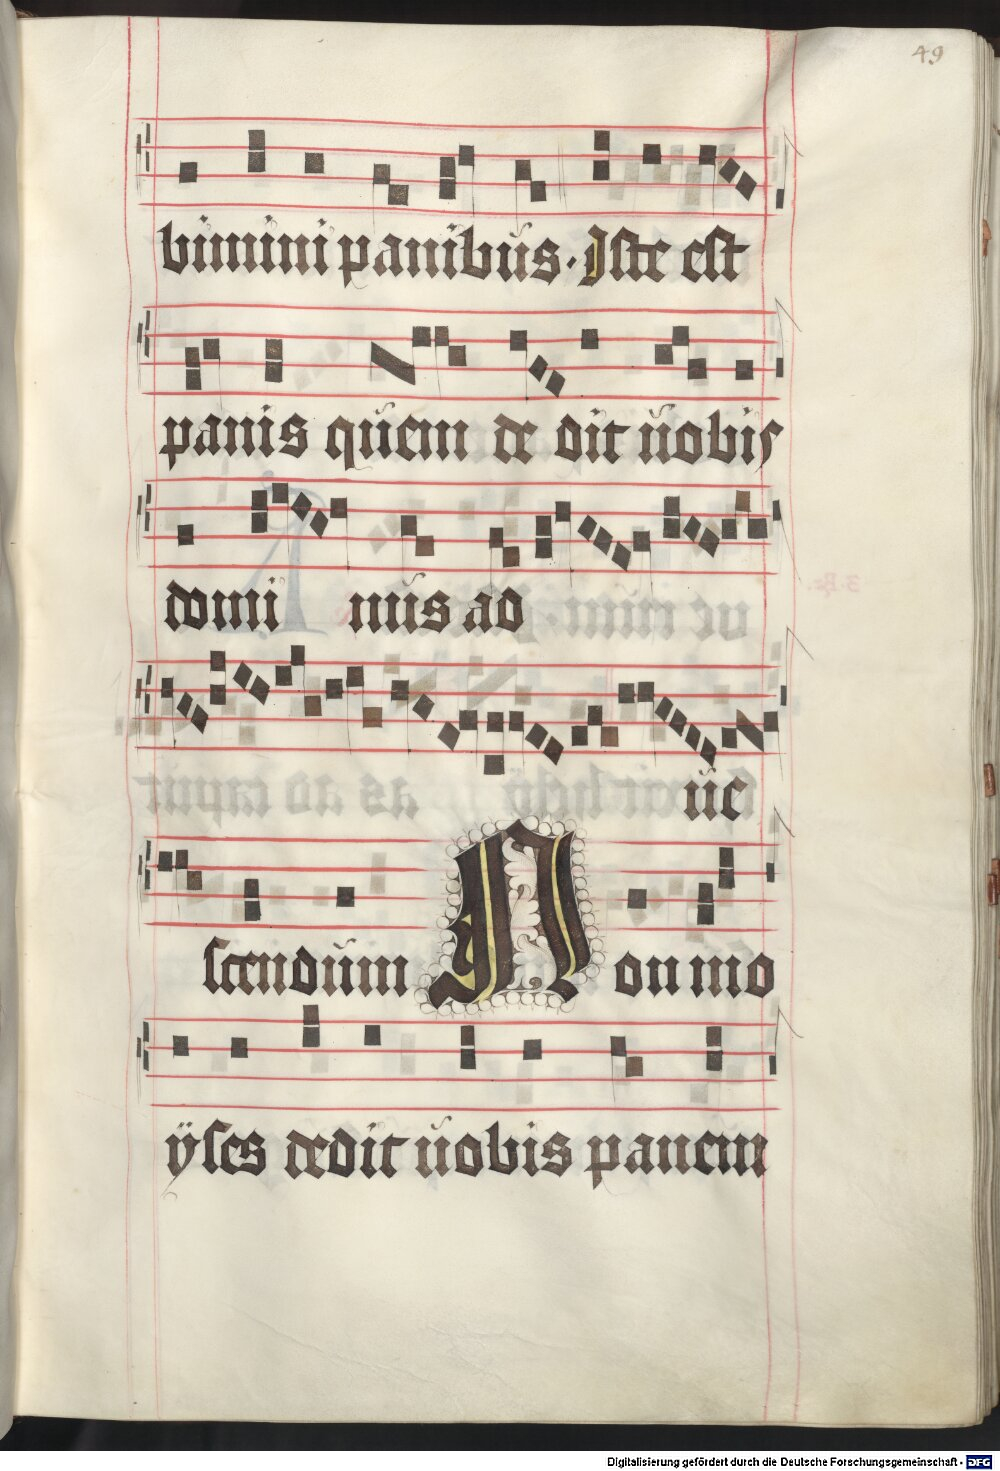 49
bimini panibus. Iste est
panis quem de dit vobis
domi nus ad
ve
scendum Non mo
yses dedit vobis panem
Digitalisierung gefördert durch die Deutsche Forschungsgemeinschaft - DFG